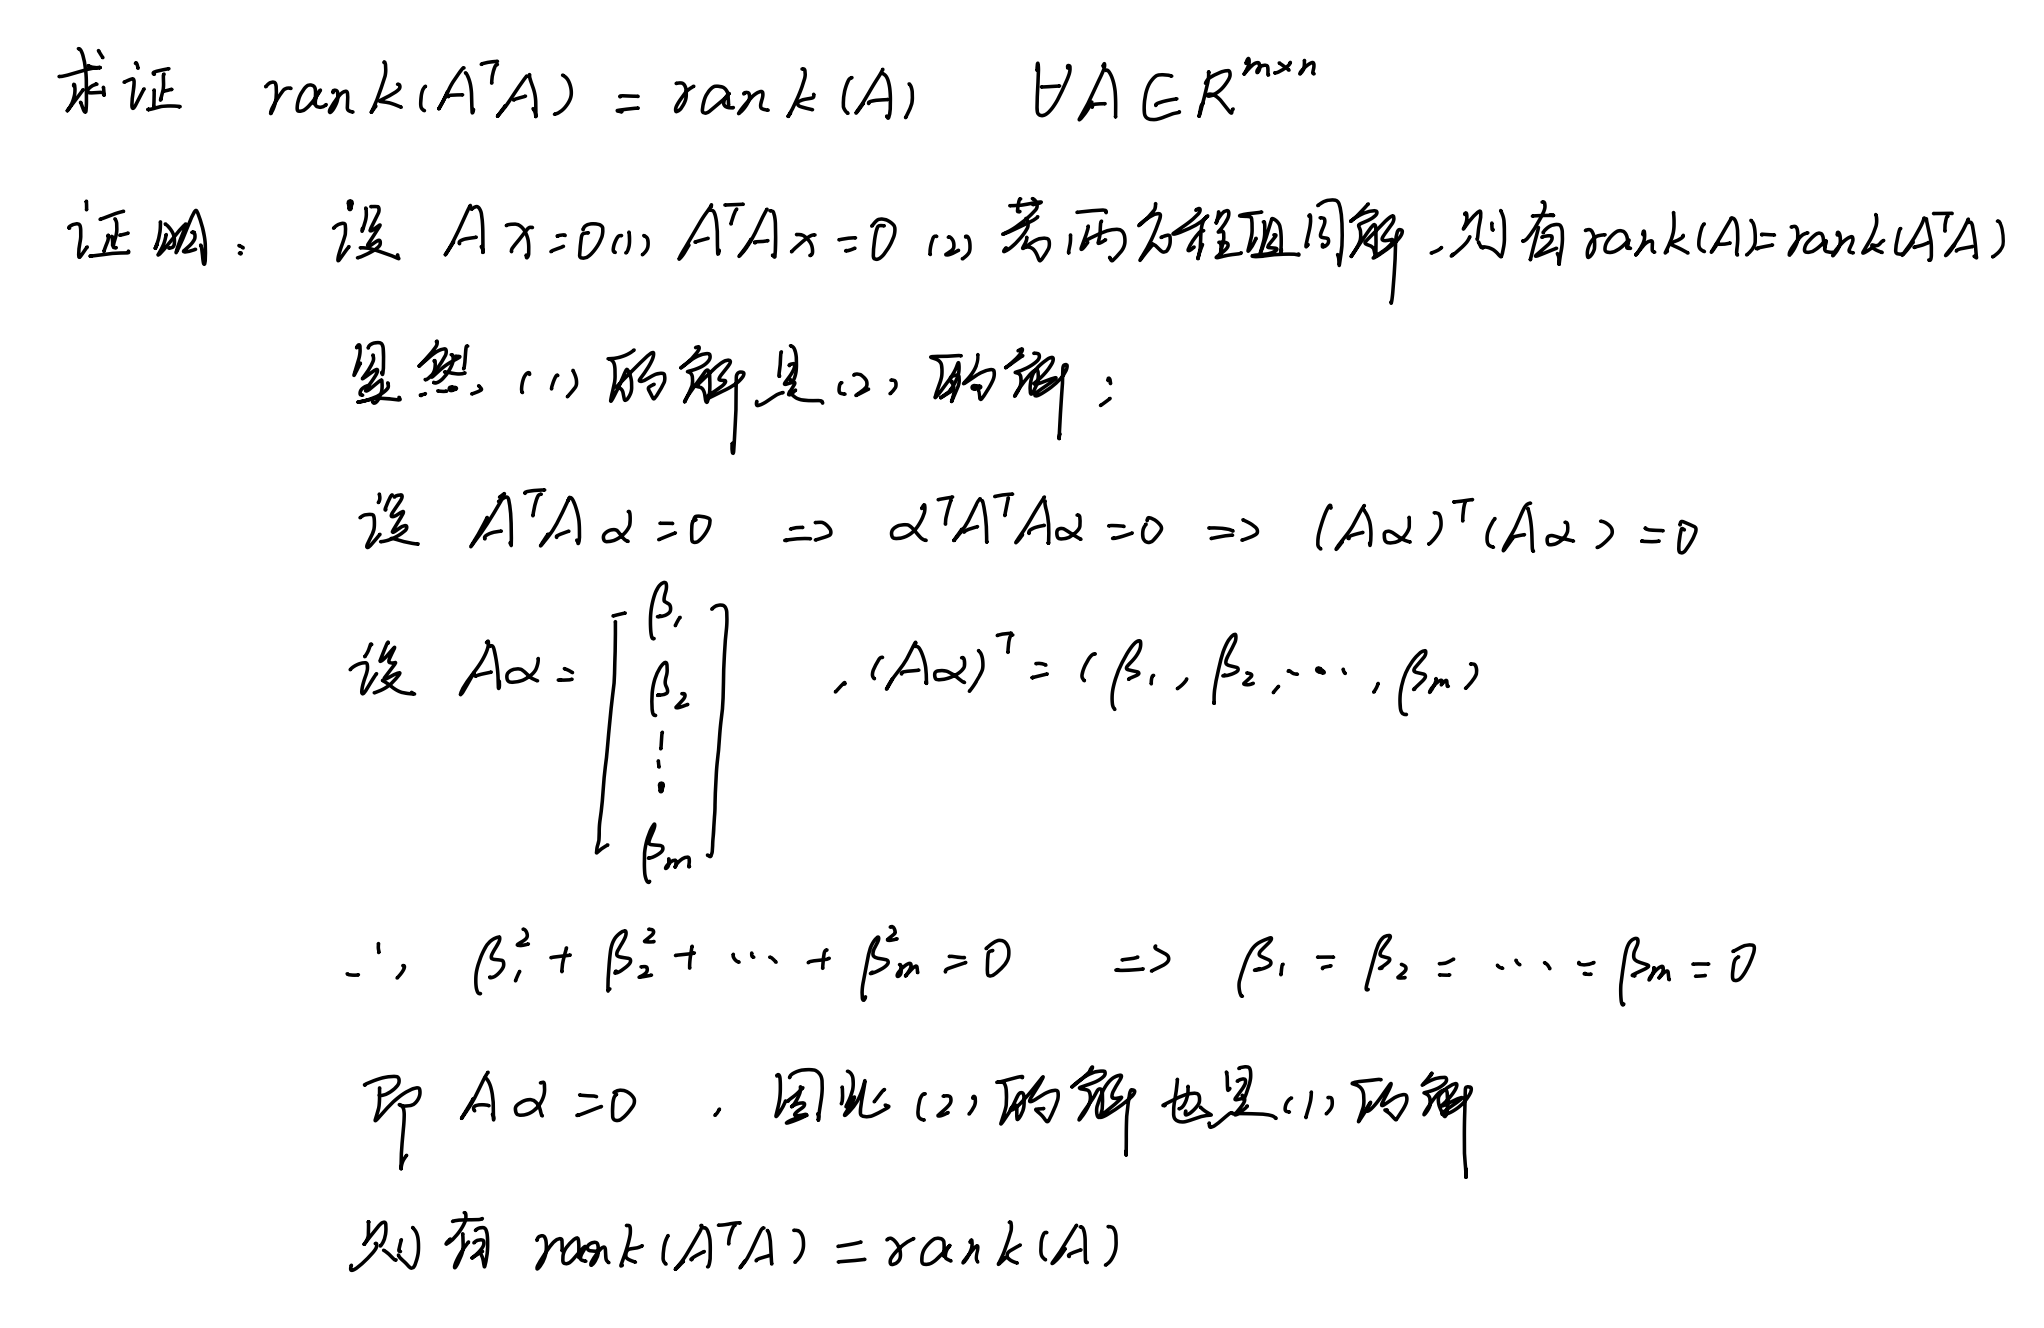 求证 rank(AᵀA) = rank(A) ∀A∈R^{m×n}
证明: 设 Ax=0(1) AᵀAx=0(2) 若两方程组同解,则有rank(A)=rank(AᵀA)
显然,(1)的解是(2)的解;
设 AᵀAα=0 => αᵀAᵀAα=0 => (Aα)ᵀ(Aα)=0
设 Aα=[β₁ β₂ ⋮ βm] , (Aα)ᵀ=(β₁, β₂, ⋯, βm)
∴ β₁²+β₂²+⋯+βm²=0 => β₁=β₂=⋯=βm=0
即 Aα=0 , 因此(2)的解也是(1)的解
则有 rank(AᵀA)=rank(A)